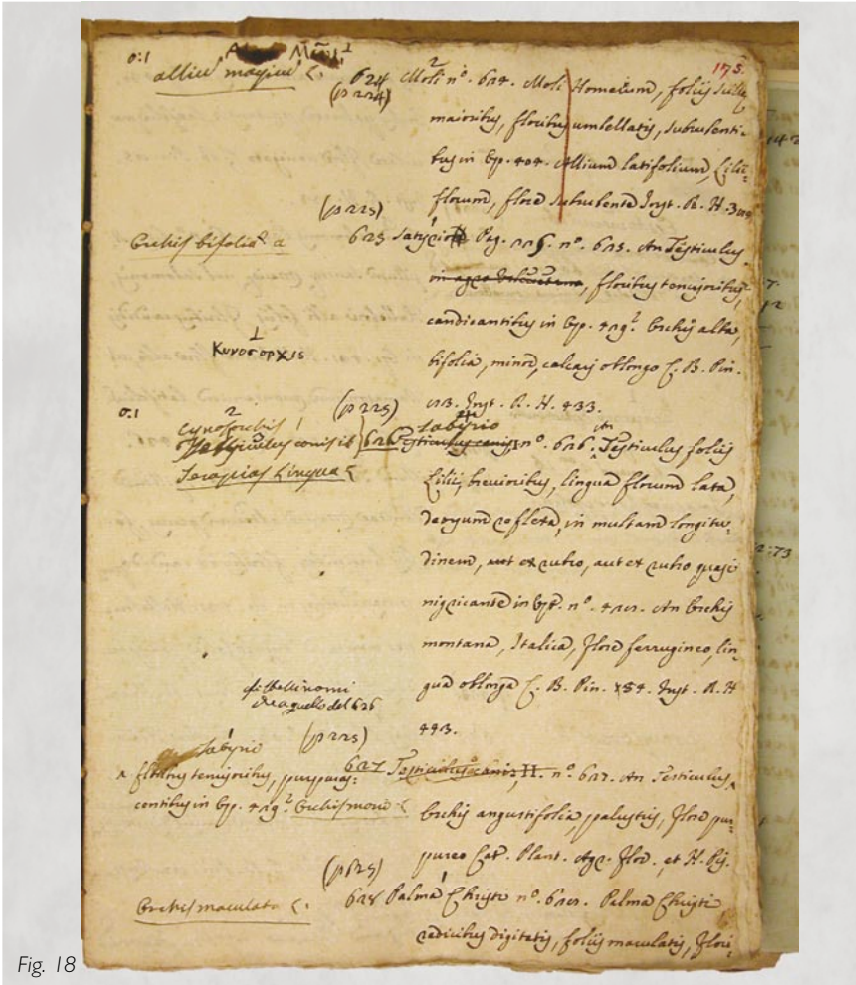 0:1
allium magicum L.
175.
624
(p 224)
Moli nº. 624. Moli Homericum, foliis
maioribus, floribus umbellatis, subrubenti-
bus in Ep. 404. Allium latifolium, Lilii-
florum, flore subrubente Inst. R. H.
(p 225)
Orchis bifolia a
625 Satyrio Pag. 225. nº. 625. An Testiculus
in agro, floribus tenuioribus,
candicantibus in Ep. 419. Orchis alba,
bifolia, minor, calcari oblongo C. B. Pin.
Κυνοσορχις
(p 225)
R. H. 433.
0:1
cynosorchis
Testiculus canis
Serapias Lingua L
satyrio
626 Testiculus canis nº. 626. An Testiculus foliis
Lilii, brevioribus, lingua florum lata,
deorsum reflexa, in multam longitu-
dinem, aut ex rubro, aut ex rubro quasi
nigricante in Ep. nº. An Orchis
montana, Italica, flore ferrugineo, lin-
gua oblonga C. B. Pin. Inst. R. H
del 626
443.
(p 225)
satyrio
627 Testiculus canis II. nº. 627. An Testiculus
floribus tenuioribus, purpuras-
centibus in Ep. 419. Orchis L
Orchis angustifolia, palustris, flore pur-
pureo Cat. Plant. Agr. Flor. et H. Pis.
(p 225)
628 Palma Christi nº. 628. Palma Christi
Orchis maculata L.
radicibus digitatis, foliis maculatis, flori-
Fig. 18